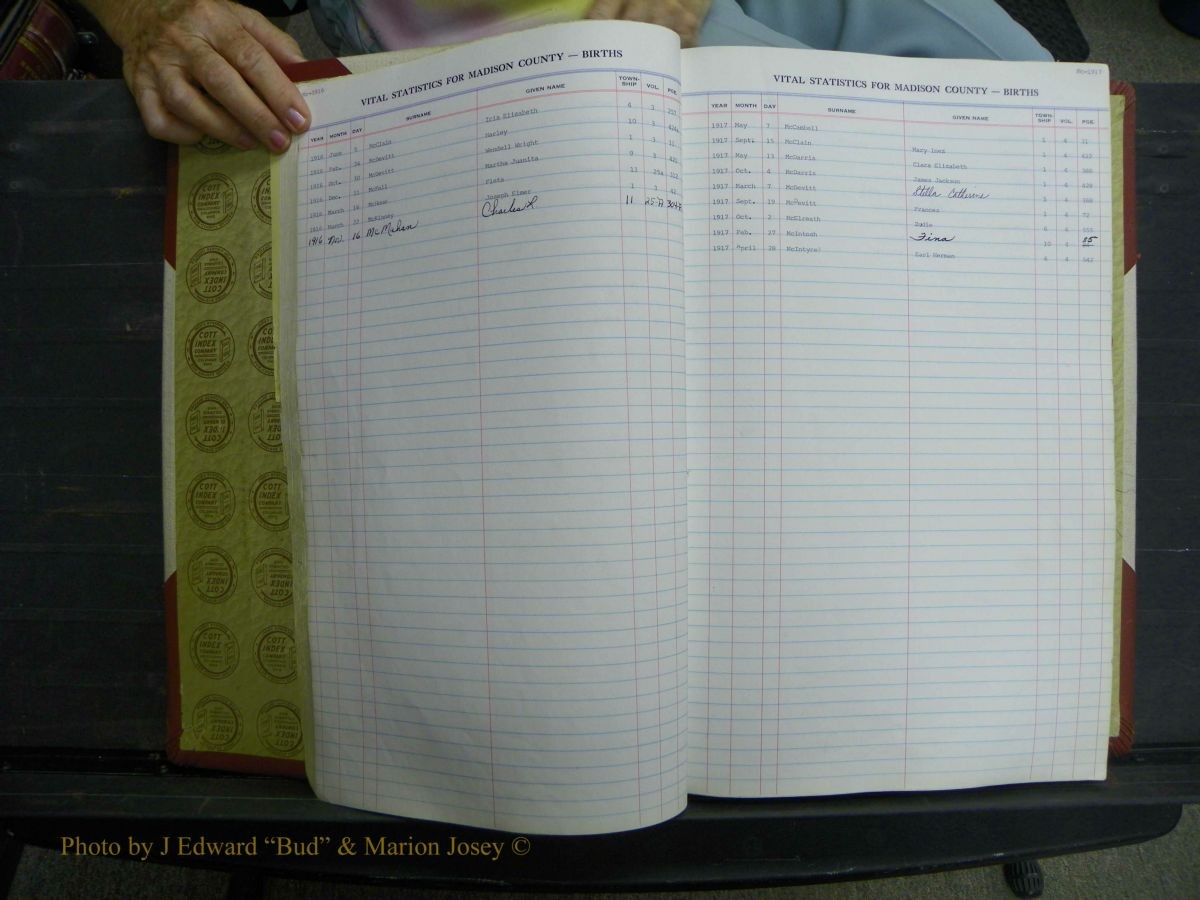 Mc-1916
VITAL STATISTICS FOR MADISON COUNTY — BIRTHS
YEAR MONTH DAY SURNAME GIVEN NAME TOWN-SHIP VOL. PGE.
1916 June 5 McClain Iris Elizabeth 6 3
1916 Feb. McDevitt Harley 10 3
1916 Oct. 10 McDevitt Wendell Wright 1 3
1916 Dec. 11 McFall Martha Juanita 3
1916 March McKinney Joseph Elmer 1 3
1916 Nov. 16 McMahan Charles R. 11 25-A
Mc-1917
VITAL STATISTICS FOR MADISON COUNTY — BIRTHS
YEAR MONTH DAY SURNAME GIVEN NAME TOWN-SHIP VOL. PGE.
1917 May 7 McCambell Mary Inez 1 4 71
1917 Sept. 15 McClain Clara Elizabeth 1 4
1917 May 13 McDarris James Jackson 1 4
1917 Oct. 4 McDarris Stella Catherine 1 4
1917 March 7 McDevitt Frances 1 4 72
1917 Sept. 19 McDevitt 6 4
1917 Oct. 2 McElreath Fina 10 4 85
1917 Feb. 27 McIntosh Earl Herman 6 4
1917 April 28 McIntyre
COTT INDEX COMPANY
Photo by J Edward “Bud” & Marion Josey ©